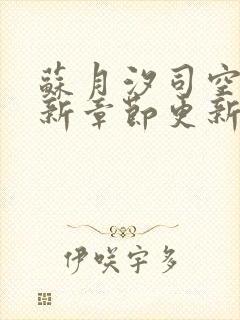 蘇月汐司空
新章節更新
伊咲宇多